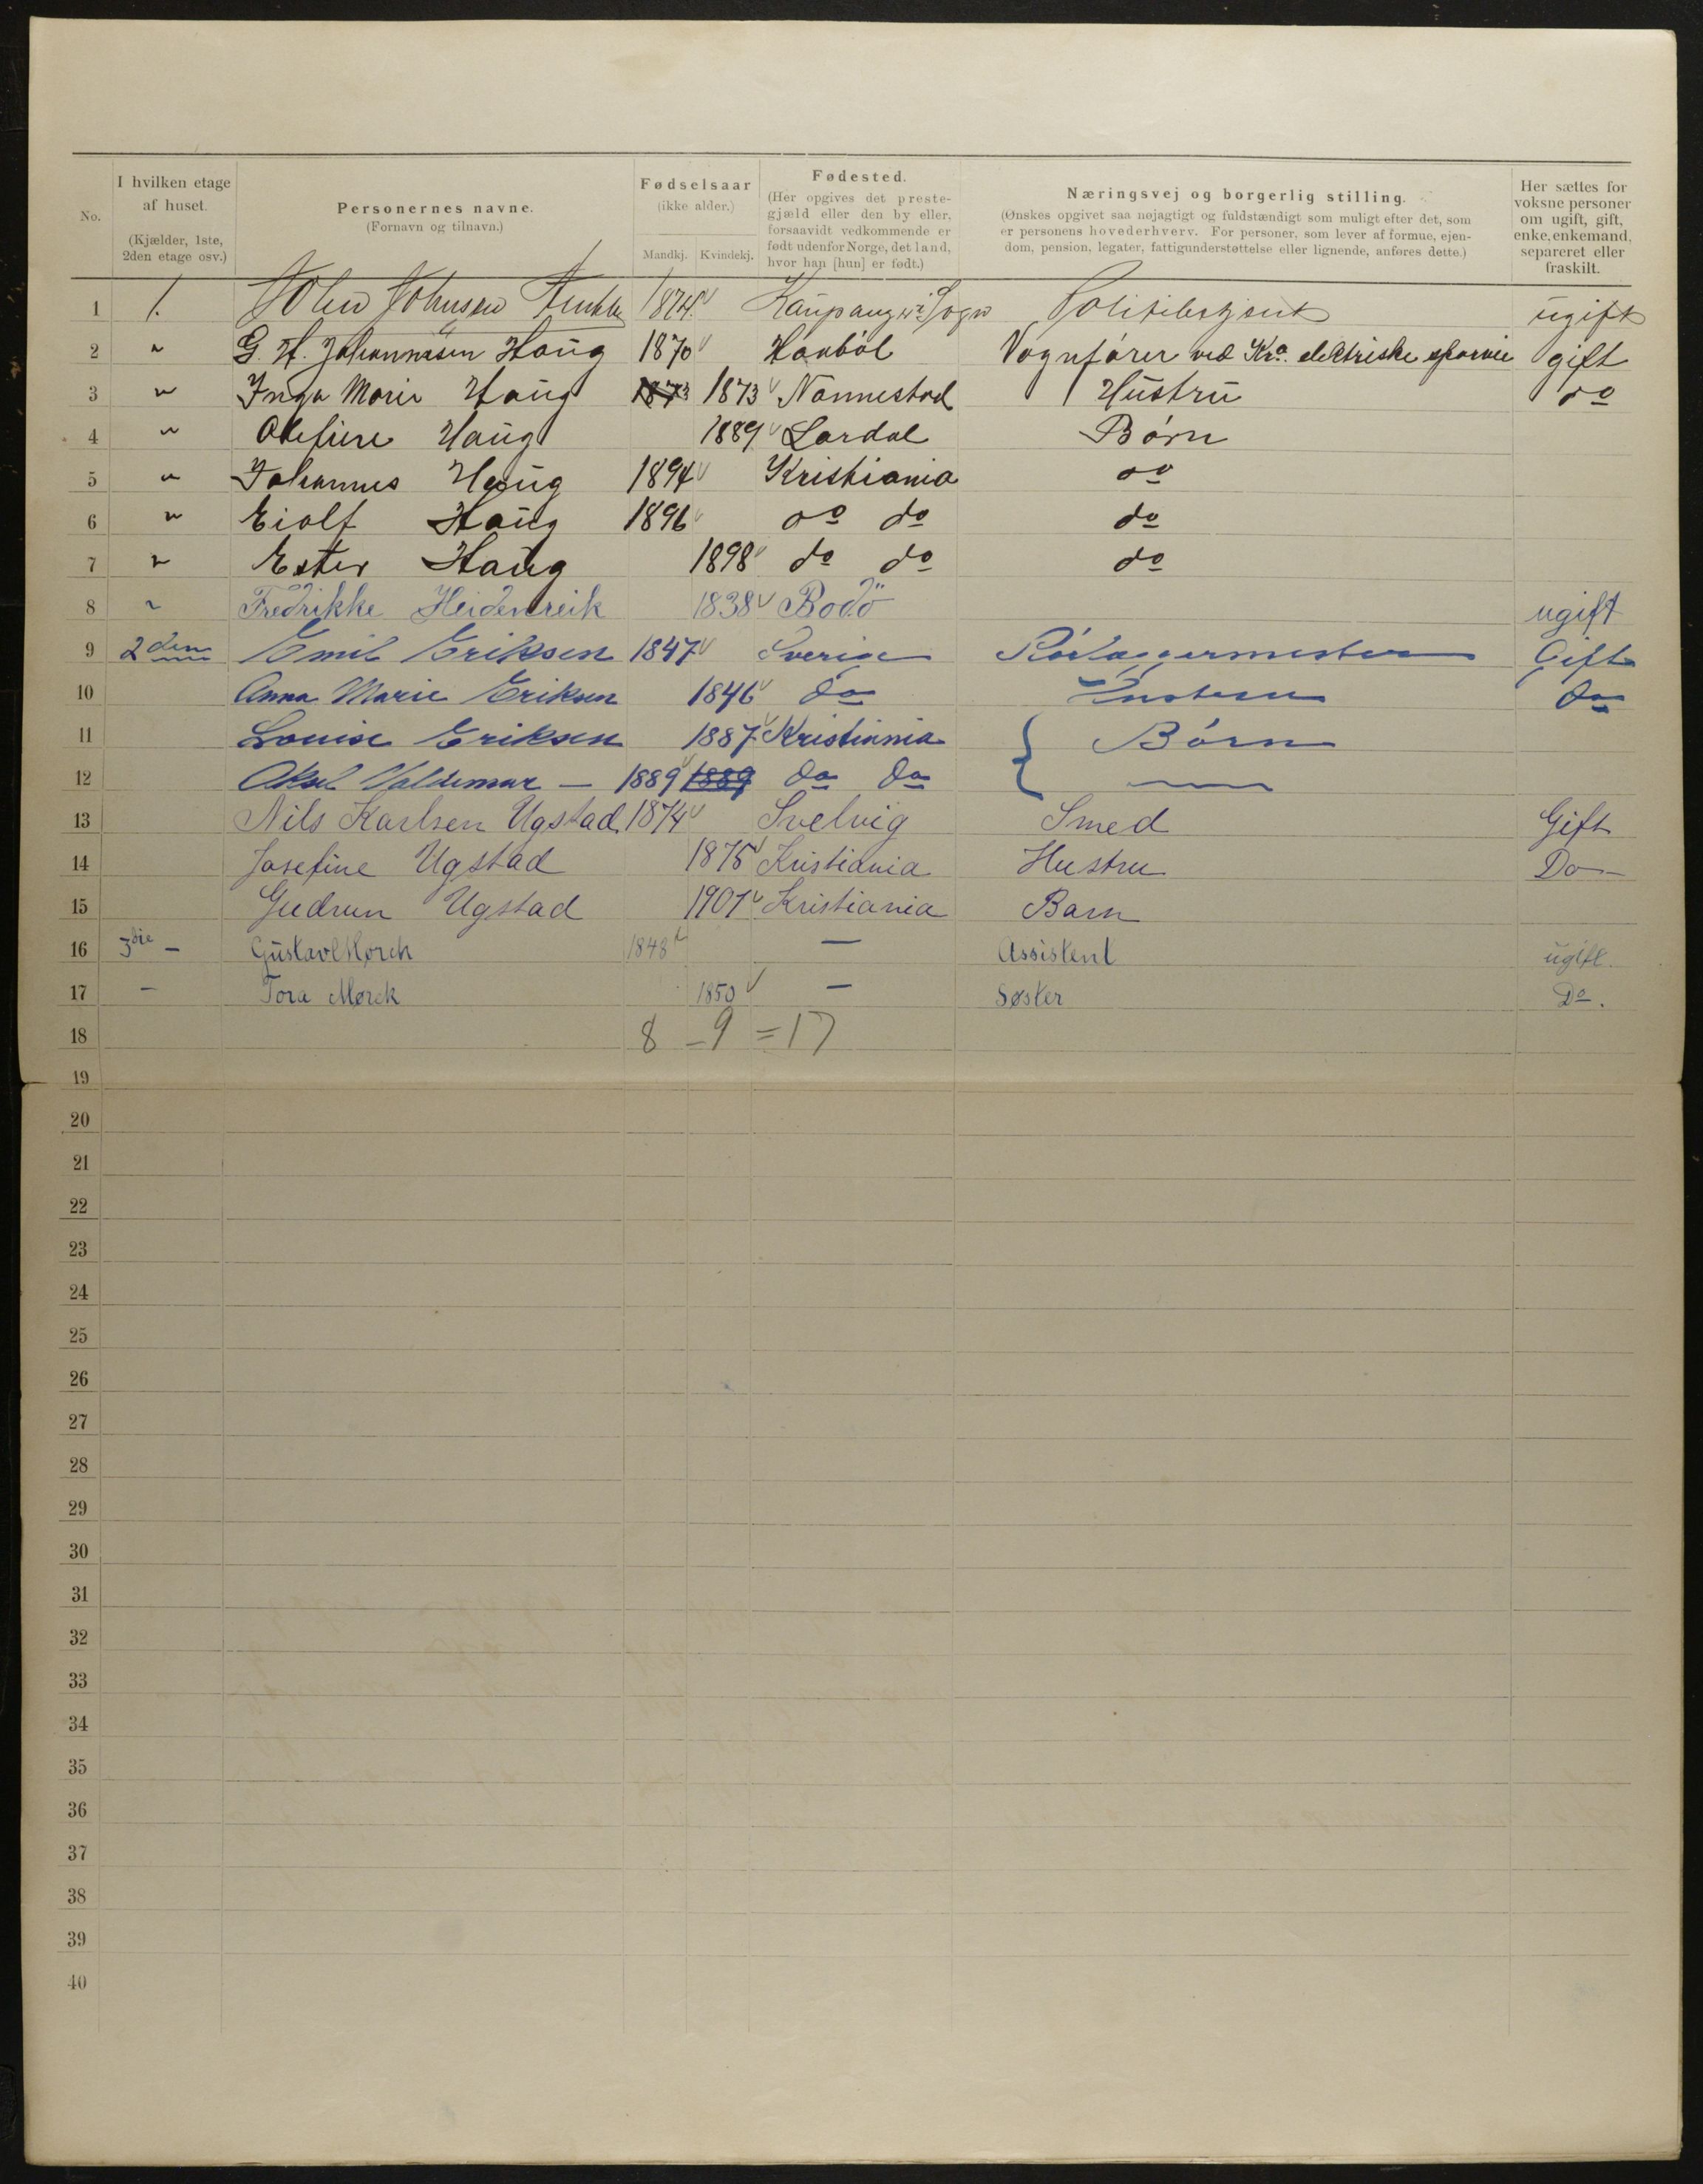 No.
I hvilken etage af huset. (Kjælder, 1ste, 2den etage osv.)
Personernes navne. (Fornavn og tilnavn.)
Fødselsaar (ikke alder.) Mandkj. Kvindekj.
Fødested. (Her opgives det prestegjæld eller den by eller, forsaavidt vedkommende er født udenfor Norge, det land, hvor han [hun] er født.)
Næringsvej og borgerlig stilling. (Ønskes opgivet saa nøjagtigt og fuldstændigt som muligt efter det, som er personens hovederhverv. For personer, som lever af formue, ejendom, pension, legater, fattigunderstøttelse eller lignende, anføres dette.)
Her sættes for voksne personer om ugift, gift, enke, enkemand, separeret eller fraskilt.
1 1. John Johnsen 1874 Kaupanger i Sogn Politibetjent ugift
2 " G. H. Johannesen Haug 1870 Haabøl Vognfører ved Kra. elektriske sporvei gift
3 " Inga Marie Haug 1873 1873 Nannestad Hustru do
4 " Olefine Haug 1889 Lardal Børn
5 " Johannes Haug 1894 Kristiania do
6 " Eiolf Haug 1896 do do do
7 " Ester Haug 1898 do do do
8 " Fredrikke Heidenreik 1838 Bodö ugift
9 2den Emil Eriksen 1847 Sverige Rørlæggermester Gift
10 Anna Marie Eriksen 1846 do Hustru do
11 Louise Eriksen 1887 Kristiania { Børn
12 Aksel Valdemar — 1889 1889 do do
13 Nils Karlsen Ugstad 1874 Svelvig Smed Gift
14 Josefine Ugstad 1875 Kristiania Hustru Do
15 Gudrun Ugstad 1901 Kristiania Barn
16 3die — Gustav Mørch 1848 — Assistent ugift.
17 — Tora Mørck 1850 — Søster Do.
18 8 – 9 = 17
19
20
21
22
23
24
25
26
27
28
29
30
31
32
33
34
35
36
37
38
39
40